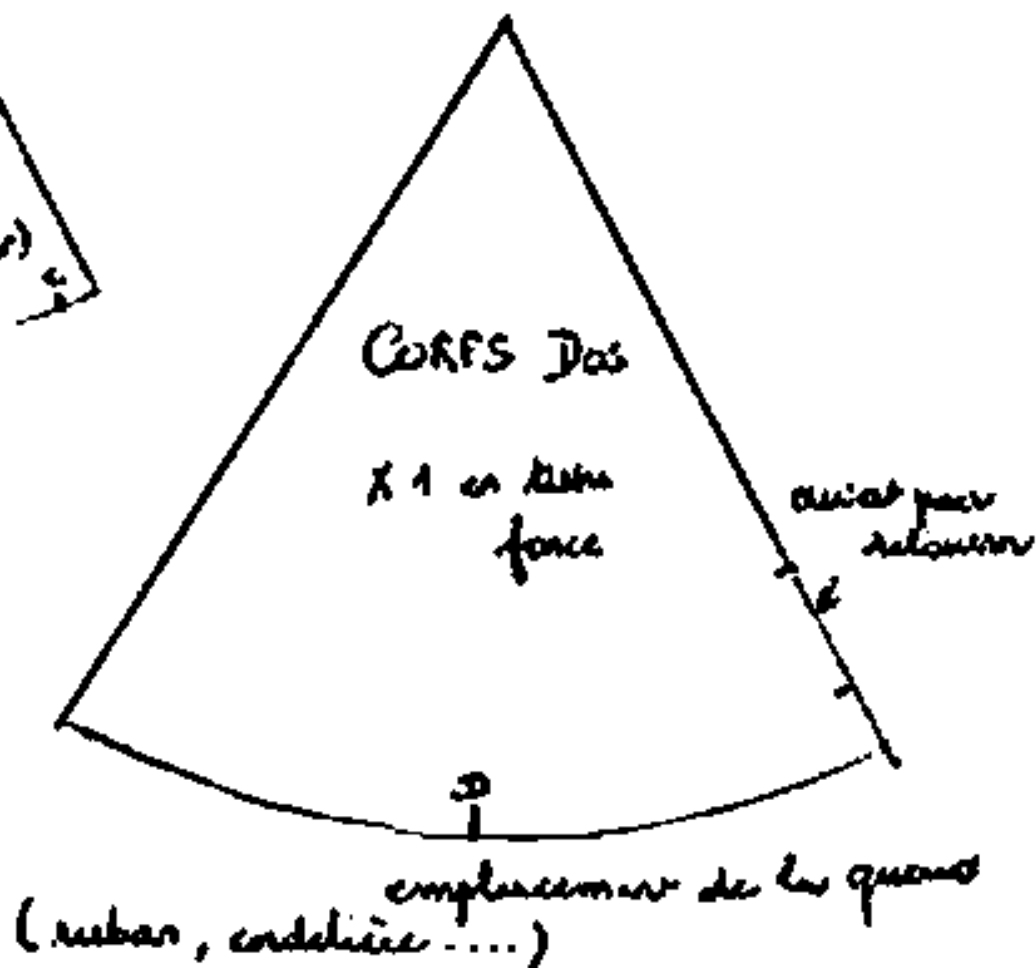 CORPS DOS
X 1 en tissu
foncé
ouvert pour
retourner
D
emplacement de la queue
(ruban, cordelière ....)